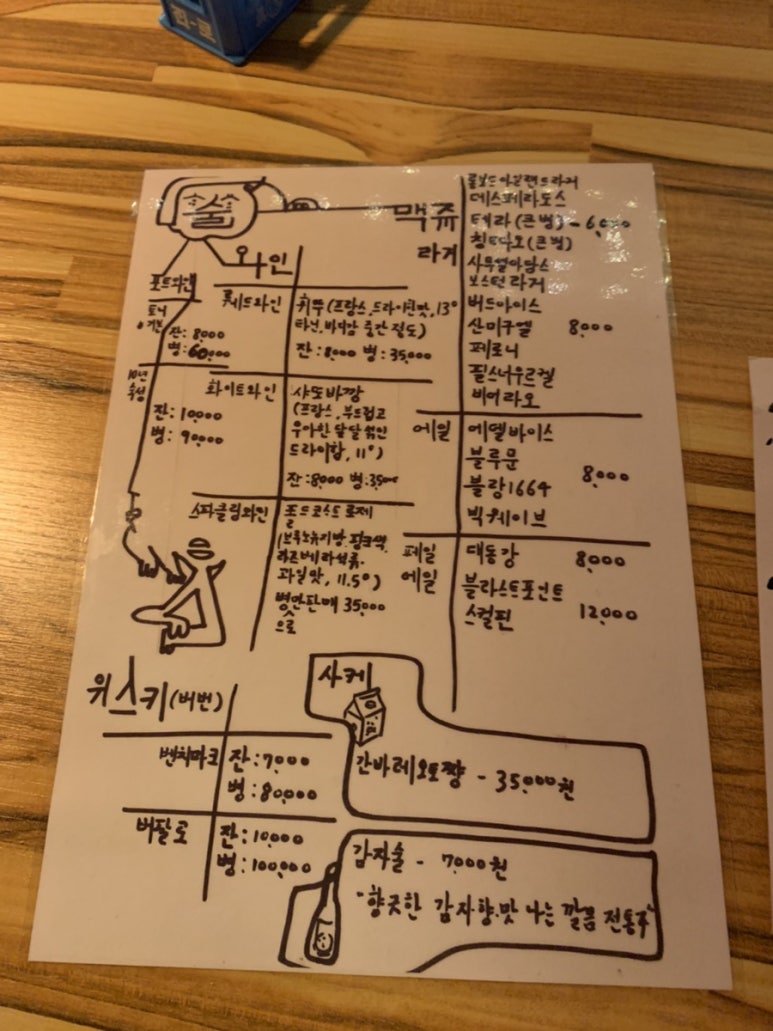 술
와인
포트와인
토니
기본
잔: 8,000
병: 60,000
10년
숙성
잔: 10,000
병: 90,000
레드와인
휘뚜(프랑스, 드라이한맛, 13°
타닌, 바디감 중간 정도)
잔: 8,000 병: 35,000
화이트와인
샤또바깡
(프랑스, 부드럽고
우아한 달달 섞인
드라이함, 11°)
잔: 8,000 병: 35,000
스파클링와인
과일맛, 11.5°)
병만판매 35,000
으로
맥쥬
라거
데스페라도스
테라 (큰병) - 6,000
칭따오 (큰병)
사무엘아담스
보스턴 라거
버드아이스
산미구엘 8,000
페로니
필스너우르켈
비어라오
에일
에델바이스
블루문
블랑1664
8,000
빅웨이브
페일
에일
대동강 8,000
블라스트포인트
스컬핀 12,000
위스키 (버번)
벤치마크
잔: 7,000
병: 80,000
버팔로
잔: 10,000
병: 100,000
사케
간바레오또쨩 - 35,000원
감자술 - 7,000원
"향긋한 감자향.맛 나는 깔끔 전통주"